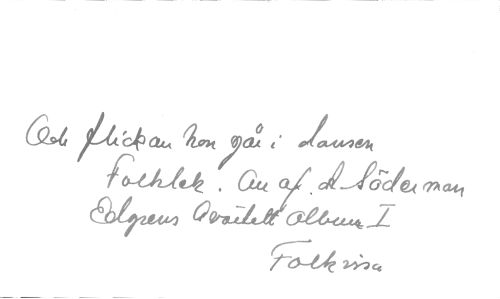 Och flickan hon går i dansen
Folklek. Arr af. A Söderman
Edgrens Qvartett Album I
Folkvisa